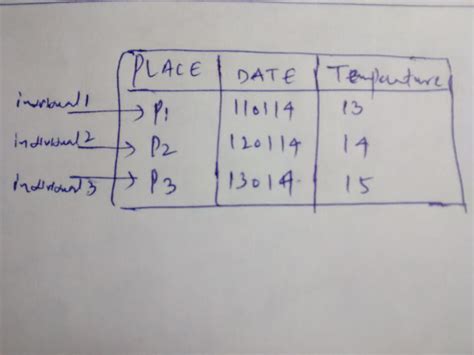 PLACE DATE Temperature
individual 1 P1 110114 13
individual 2 P2 120114 14
individual 3 P3 130114 15